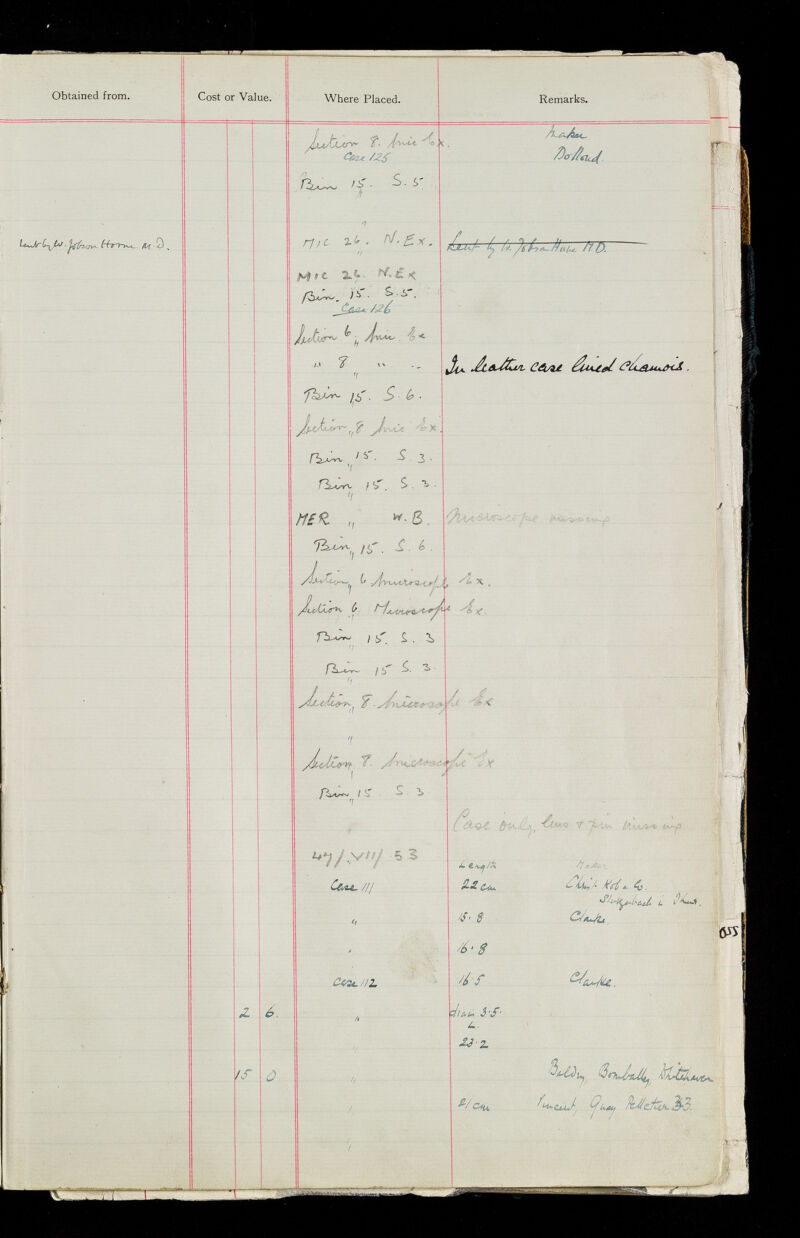 Obtained from. Cost or Value. Where Placed. Remarks.
Section 8. Mic Ex. Maker
Case 125 Dollond.
Bin 15. S. 5
Lent by W. Jobson Horne M.D. MIC 26. N. Ex. Lent by W. Jobson Horne M.D.
MIC 26. N. Ex
Bin. 15. S. 5.
Case 126
Section 6 " Mic. Ex
" 8 " " In leather case lined chamois.
Bin 15. S. 6.
Section " 8 Mic Ex.
Bin " 15. S. 3.
Bin 15. S. 3.
MER " W. B. Microscope missing
Bin " 15. S. 6.
Section " 6 Microscope Ex.
Section 6 Microscope Ex.
Bin 15. S. 3
Bin 15 S. 3
Section " 8. Microscope Ex
"
Section 8. Microscope Ex
Bin " 15 S 3
Case only, lens & pin missing
47/VII/53 Length Maker
Case 111 22 cm
" 15.8 Clarke
" 16.8
Case 112 16.5 Clarke.
2 6. " diam 3.5.
L.
23.2
15 0 " Whitehaven
" 21 cm Vincent, Quay Pelletier 33.
"